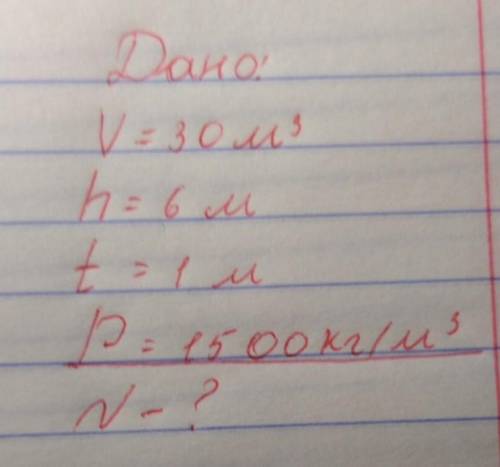 Дано:
V = 30 м³
h = 6 м
t = 1 м
P = 1500 кг/м³
N - ?